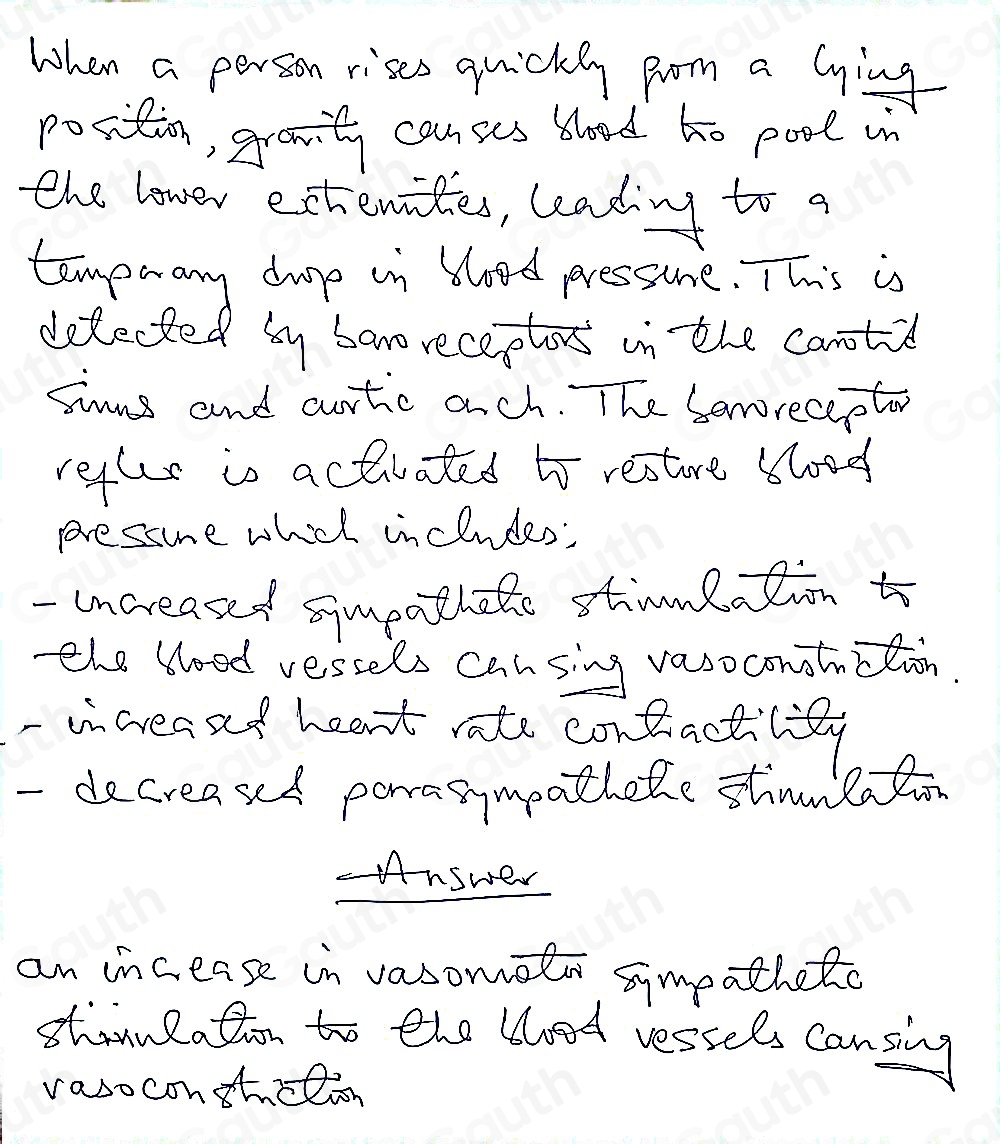 When a person rises quickly from a lying
position, gravity causes blood to pool in
the lower extremities, leading to a
temporary drop in blood pressure. This is
detected by baroreceptors in the carotid
sinus and aortic arch. The baroreceptor
reflex is activated to restore blood
pressure which includes;
- increased sympathetic stimulation to
the blood vessels causing vasoconstriction.
- increased heart rate contractility
- decreased parasympathetic stimulation
Answer
an increase in vasomotor sympathetic
stimulation to the blood vessels causing
vasoconstriction